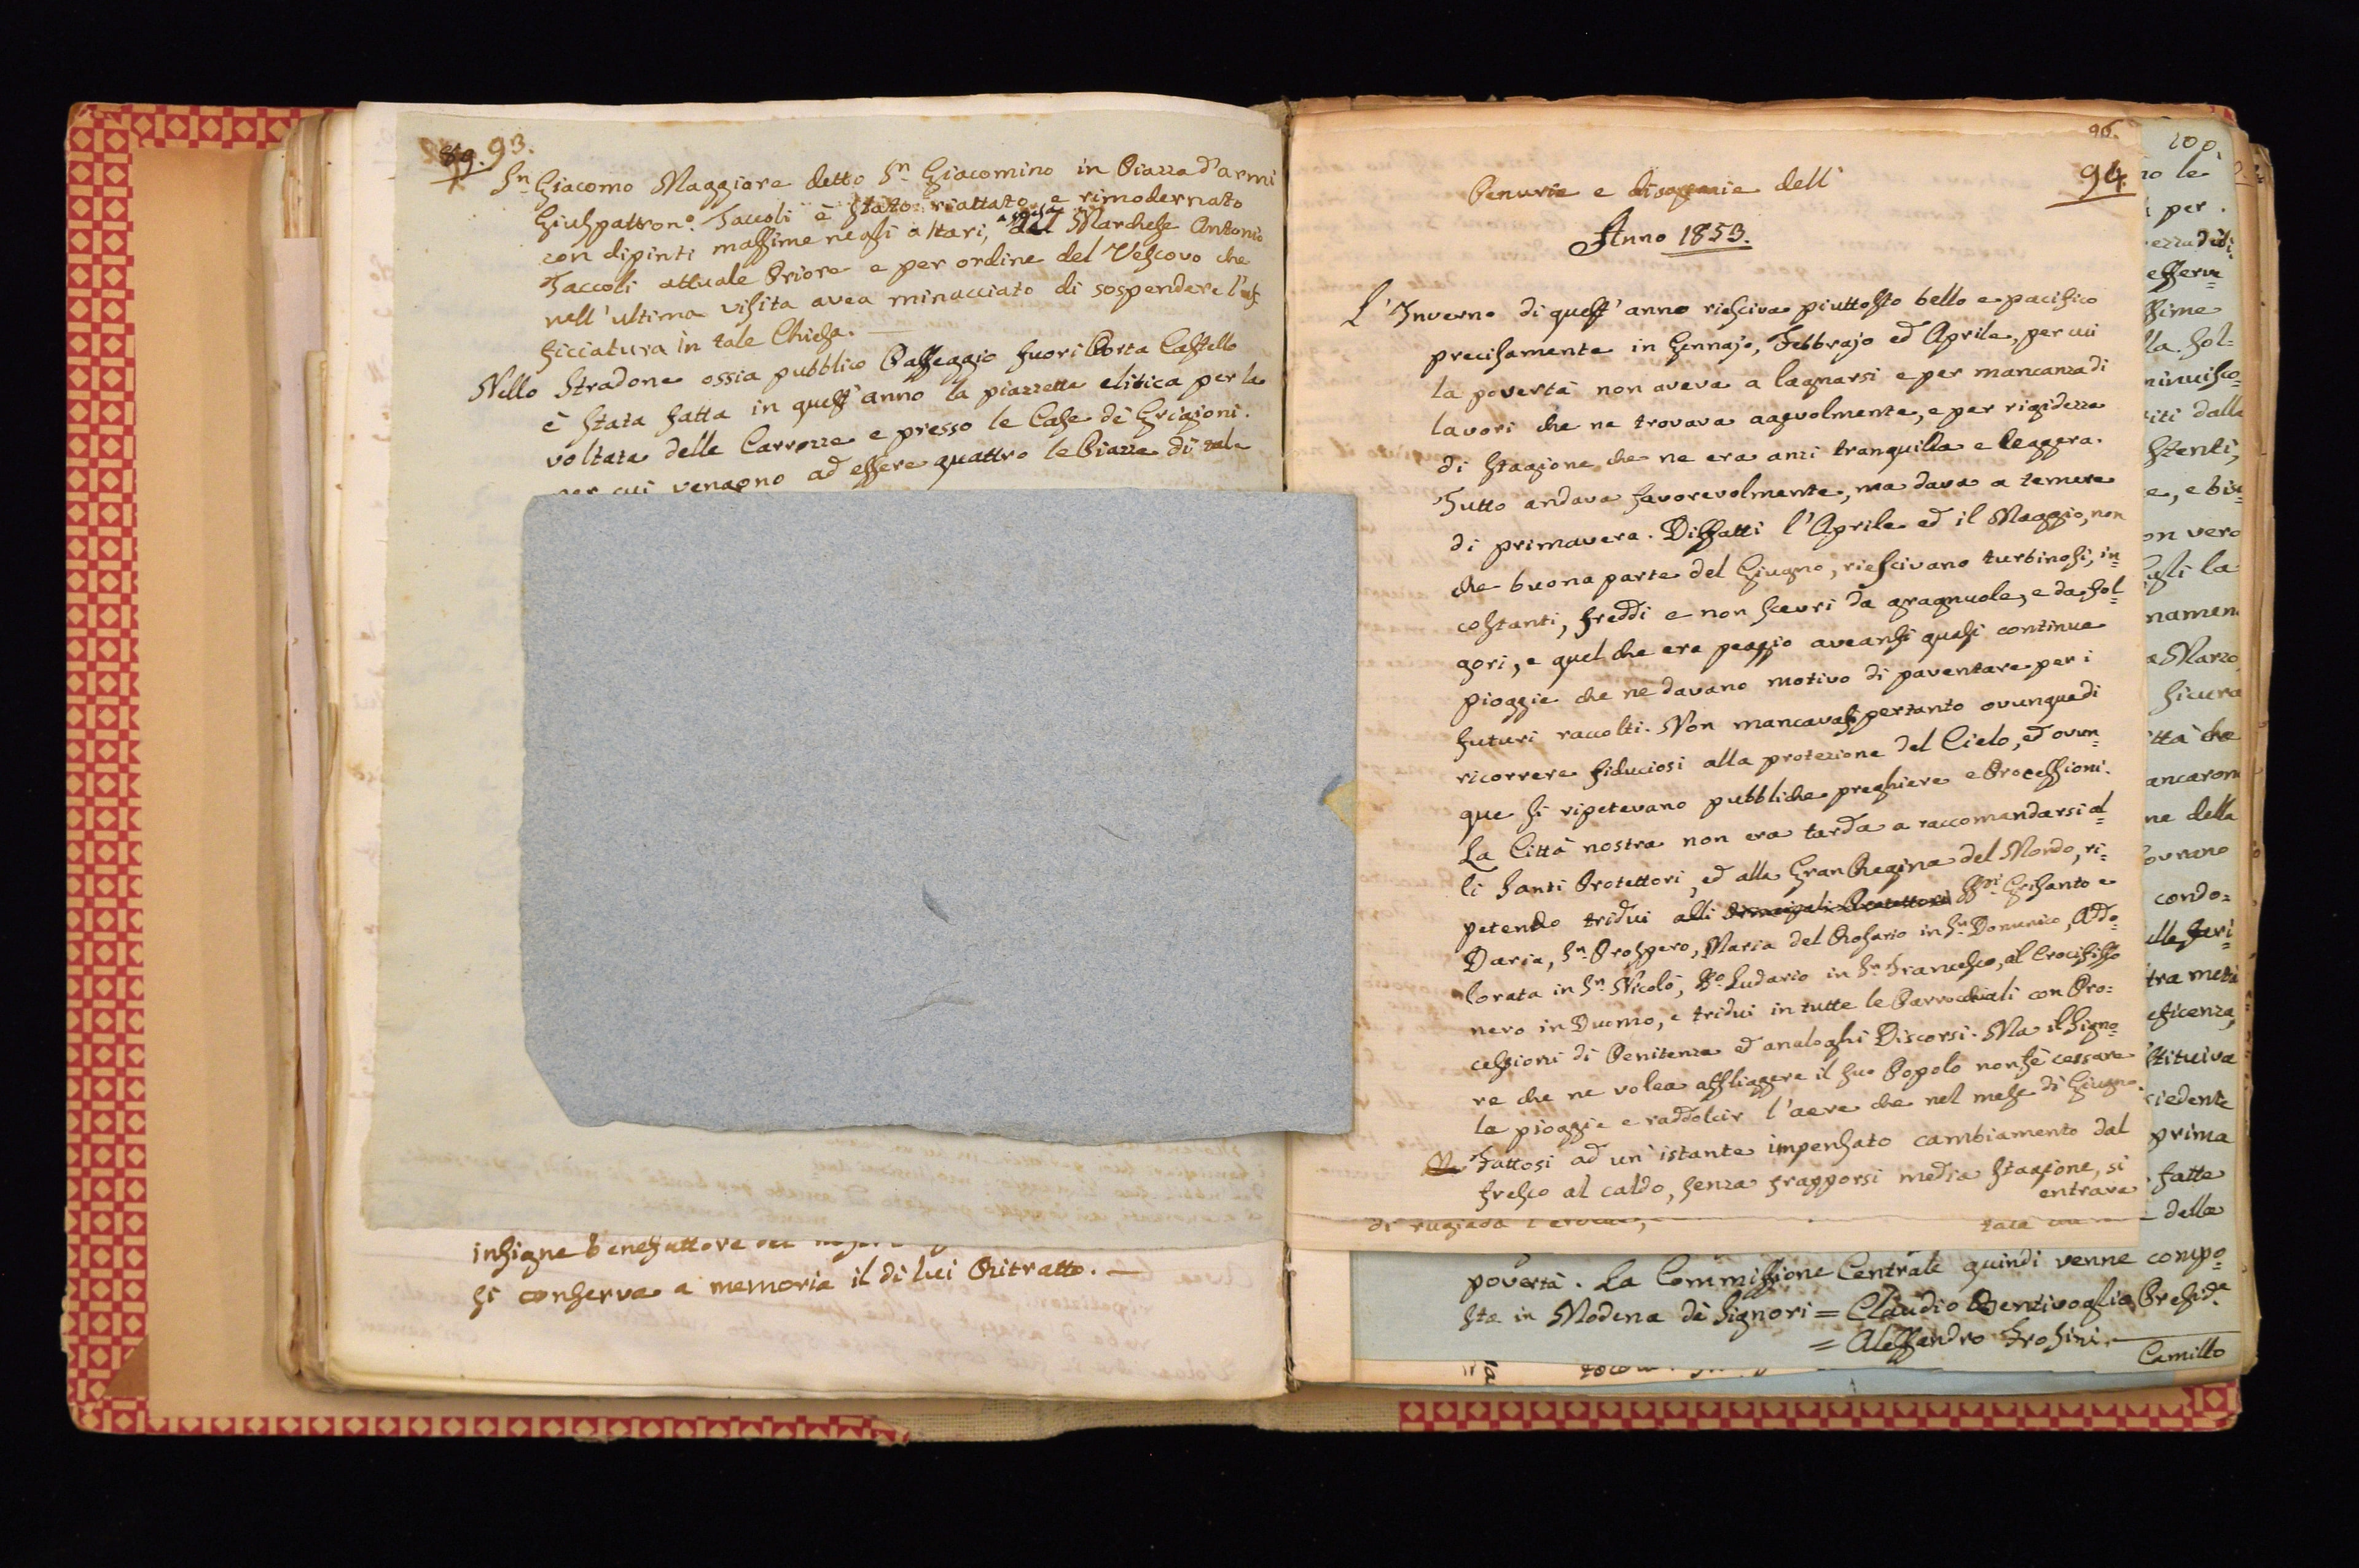 89. 93.
Sn Giacomo Maggiore detto Sn Giacomino in Piazza d'armi
Giuspattron.o Taccoli è stato riattato e rimodernato
con dipinti massime negli altari, a spesa del Marchese Antonio
Taccoli attuale Priore e per ordine del Vescovo che
nell'ultima visita avea minacciato di sospendere l'uf=
ficiatura in tale Chiesa. —
Nello Stradone ossia pubblico Passeggio fuori Porta Castello
è stata fatta in quest'anno la piazzetta elitica per la
voltata delle Carrozze e presso le Case de Grigioni.
per cui vengono ad essere quattro le Piazze di tale
insigne benefattore
si conserva a memoria il di lui Ritratto. —
96.
94.
Penurie e disgrazie dell'
Anno 1853.
L'Inverno di quest'anno riesciva piuttosto bello e pacifico
precisamente in Gennajo, Febbrajo ed Aprile, per cui
la povertà non aveva a lagnarsi e per mancanza di
lavori che ne trovava agevolmente, e per rigidezza
di stagione che ne era anzi tranquilla e leggera.
Tutto andava favorevolmente, ma dava a temere
di primavera. Diffatti l'Aprile ed il Maggio, non
che buona parte del Giugno, riescivano turbinosi, in=
costanti, freddi e non scevri da gragnuole, e da fol=
gori, e quel che era peggio aveansi quasi continue
pioggie che ne davano motivo di paventare per i
futuri raccolti. Non mancavasi pertanto ovunque di
ricorrere fiduciosi alla protezione del Cielo, ed ovun=
que si ripetevano pubbliche preghiere e Processioni.
La Città nostra non era tarda a raccomandarsi al=
li Santi Protettori, ed alla Gran Regina del Mondo, ri=
petendo tridui alli Principali Protettori SSti Grisanto e
Daria, Sn Prospero, Maria del Rosario in Sn Domenico, Addo=
lorata in Sn Nicolò, Bo Ludario in Sn Francesco, al Crocifisso
nero in Duomo, e tridui in tutte le Parrocchiali con Pro=
cessioni di Penitenza ed analoghi Discorsi. Ma il Signo=
re che ne volea affliggere il suo Popolo non fè cessare
la pioggie e raddolcir l'aere che nel mese di Giugno.
Fattosi ad un'istante impensato cambiamento dal
fresco al caldo, senza frapporsi media stagione, si
entrare
di rugiada
povertà. La Commissione Centrale quindi venne compo=
sta in Modena dè Signori = Claudio Bentivoglio Presid.e
= Alessandro Frosini. —
Camillo
100.
no le
per
esserne
inuisco=
iti dalla
stenti,
e, e bis
on vero
la
namen
Marzo
sicura
ittà che
ancaron
ne della
ovrano
condo=
tra metà
eficenza,
stituiva
ciedente
prima
fatte
della